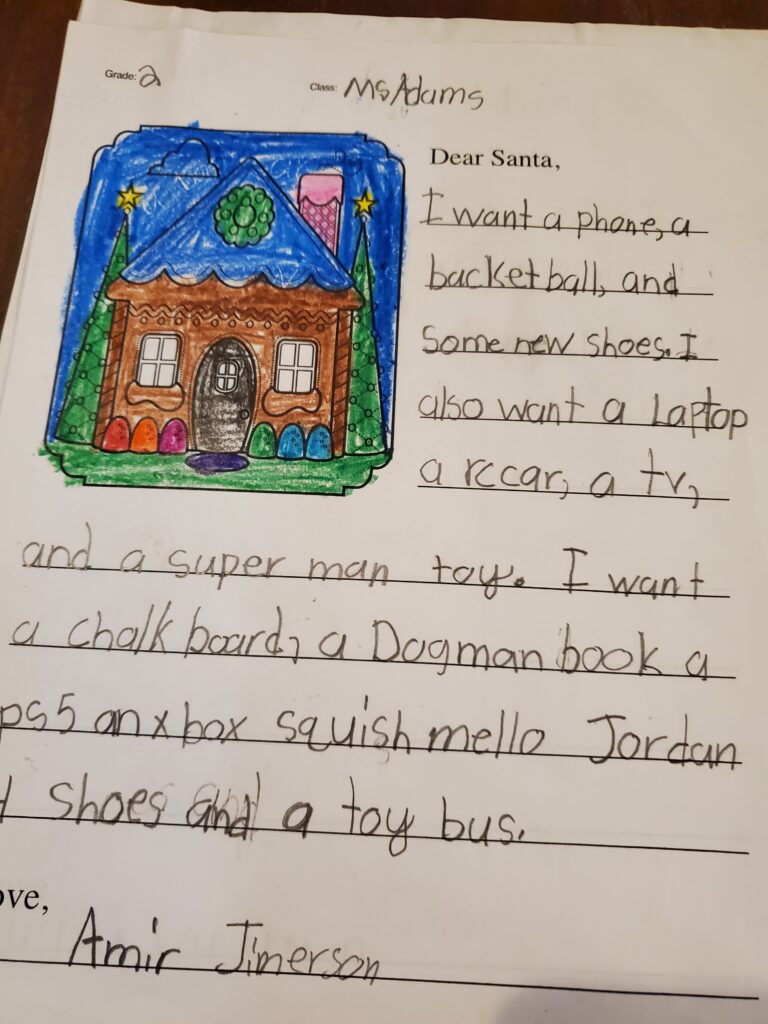 Grade: 2
Class: Ms Adams
Dear Santa,
I want a phone, a
backet ball, and
Some new shoes. I
also want a Laptop
a rc car, a tv,
and a super man toy. I want
a chalk board, a Dogman book a
ps5 an x box squish mello Jordan
shoes and a toy bus.
ove,
Amir Jimerson